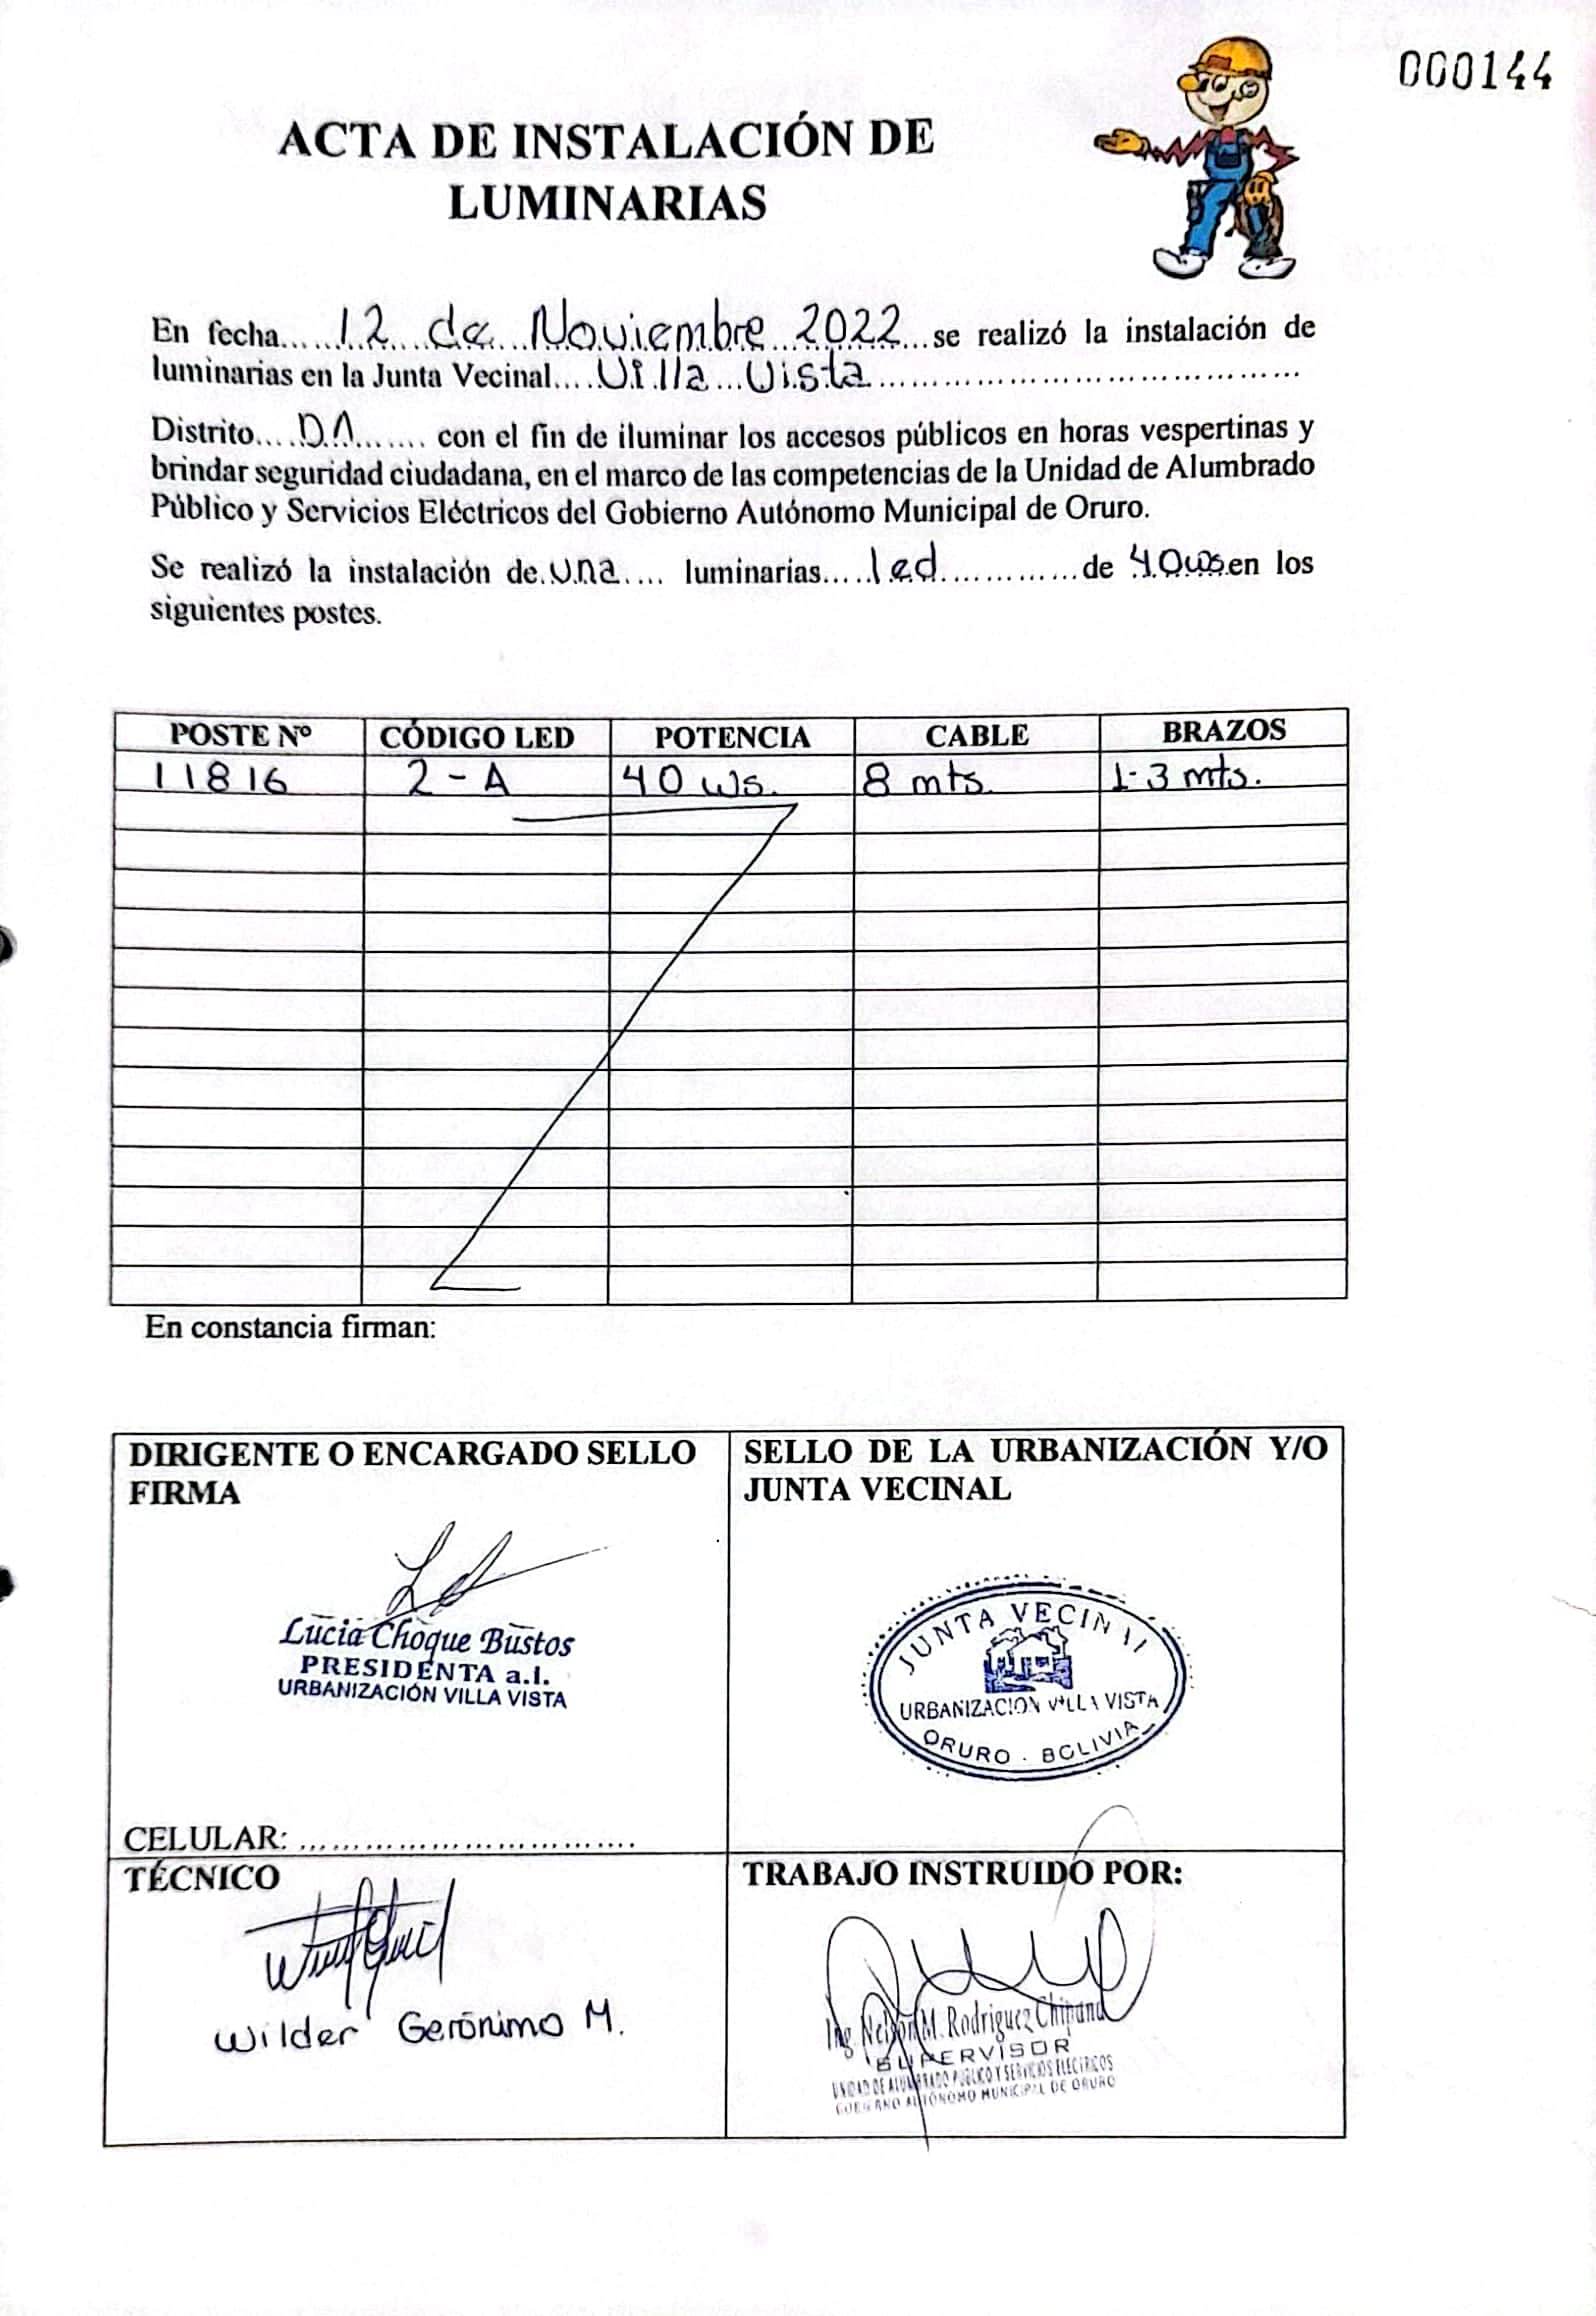 000144
ACTA DE INSTALACIÓN DE
LUMINARIAS
En fecha......12...de...Noviembre...2022...se realizó la instalación de
luminarias en la Junta Vecinal.....Villa...Vista..........................................
Distrito.....D.1....... con el fin de iluminar los accesos públicos en horas vespertinas y
brindar seguridad ciudadana, en el marco de las competencias de la Unidad de Alumbrado
Público y Servicios Eléctricos del Gobierno Autónomo Municipal de Oruro.
Se realizó la instalación de..una.... luminarias.....led............de 40ws.en los
siguientes postes.
POSTE Nº CÓDIGO LED POTENCIA CABLE BRAZOS
11816 2-A 40 ws. 8 mts. 1-3 mts.
En constancia firman:
DIRIGENTE O ENCARGADO SELLO
FIRMA
Lucia Choque Bustos
PRESIDENTA a.I.
URBANIZACIÓN VILLA VISTA
CELULAR: ................................
SELLO DE LA URBANIZACIÓN Y/O
JUNTA VECINAL
JUNTA VECINAL
URBANIZACION VILLA VISTA
ORURO - BOLIVIA
TÉCNICO
Wilder Gerónimo M.
TRABAJO INSTRUIDO POR:
Ing. Nelson M. Rodriguez Chipana
SUPERVISOR
UNIDAD DE ALUMBRADO PUBLICO Y SERVICIOS ELECTRICOS
GOBIERNO AUTÓNOMO MUNICIPAL DE ORURO